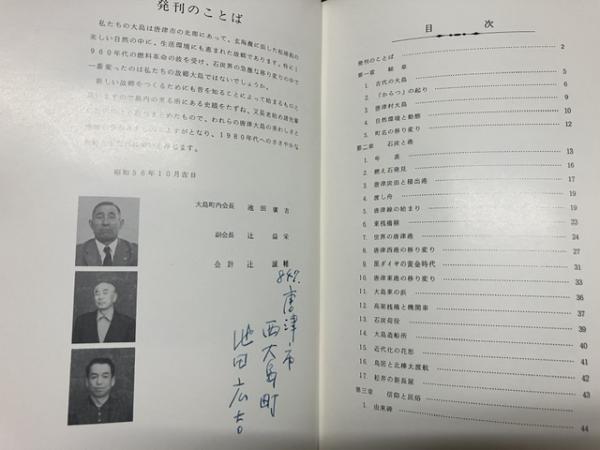 発刊のことば
私たちの大島は唐津市の北部にあって、玄海灘に面した松浦潟の
美しい自然の中に、生活環境にも恵まれた故郷であります。特に1
960年代の燃料革命の波を受け、石炭界の急激な移り変りの中で
一番変ったのは私たちの故郷大島ではないでしょうか。
新しい故郷をつくるためにも昔を知ることによって始まるものと
昭和56年10月吉日
大島町内会長 池田廣吉
副会長 辻益栄
会計 辻
847.
唐津市
西大島町
池田広吉
目次
発刊のことば 2
第一章 総章
1. 古代の大島 5
2. 「からつ」の起り 6
3. 唐津村大島 9
4. 自然環境と動態 10
5. 町名の移り変り 12
第二章 石炭と港
1. 年表 13
2. 燃え石発見 16
3. 唐津炭田と積出港 17
4. 渡し舟 19
5. 唐津線の始まり 19
6. 東桟橋
7. 世界の唐津港 24
8. 唐津西港の移り変り 27
9. 黒ダイヤの黄金時代 31
10. 唐津東港の移り変り 33
11. 大島東の浜 36
12. 高架桟橋と機関車 37
13. 石炭荷役 39
14. 大島造船所 40
15. 近代化の花形 41
16. 島匠と北樺太渡航 42
17. 松井の新長屋 43
第三章 信仰と民俗
1. 由来碑 44